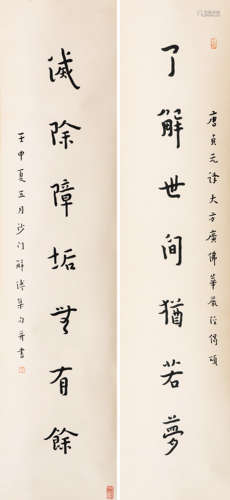 唐貞元譯大方廣佛華嚴經偈頌
了解世間猶若夢
滅除障垢無有餘
壬申夏五月沙門解縛集句并書